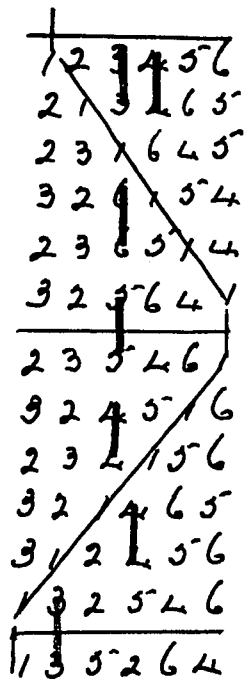 1 2 3 4 5 6
2 1 3 4 6 5
2 3 1 6 4 5
3 2 6 1 5 4
2 3 6 5 1 4
3 2 5 6 4 1
2 3 5 4 6 1
3 2 4 5 1 6
2 3 4 1 5 6
3 2 1 4 6 5
3 1 2 4 5 6
1 3 2 5 4 6
1 3 5 2 6 4